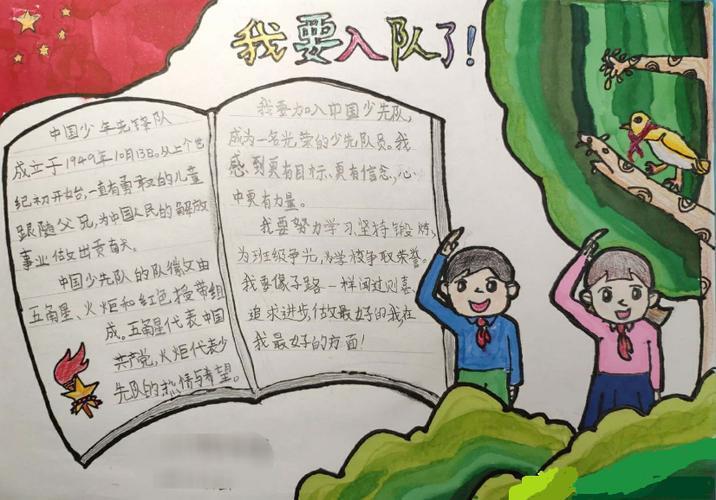 我要入队了!
中国少年先锋队
成立于1949年10月13日。从上个世
纪初开始,一直有勇敢的儿童
跟随父兄,为中国人民的解放
事业做出贡献。
中国少先队的队徽又由
五角星、火炬和红色授带组
成。五角星代表中国
共产党,火炬代表少
先队的热情与希望。
我要加入中国少先队,
成为一名光荣的少先队员。我
感到更有目标、更有信念,心
中更有力量。
我要努力学习,坚持锻炼,
为班级争光,为学校争取荣誉。
我要像子路一样闻过则喜,
追求进步,做最好的我,在
我最好的方面!